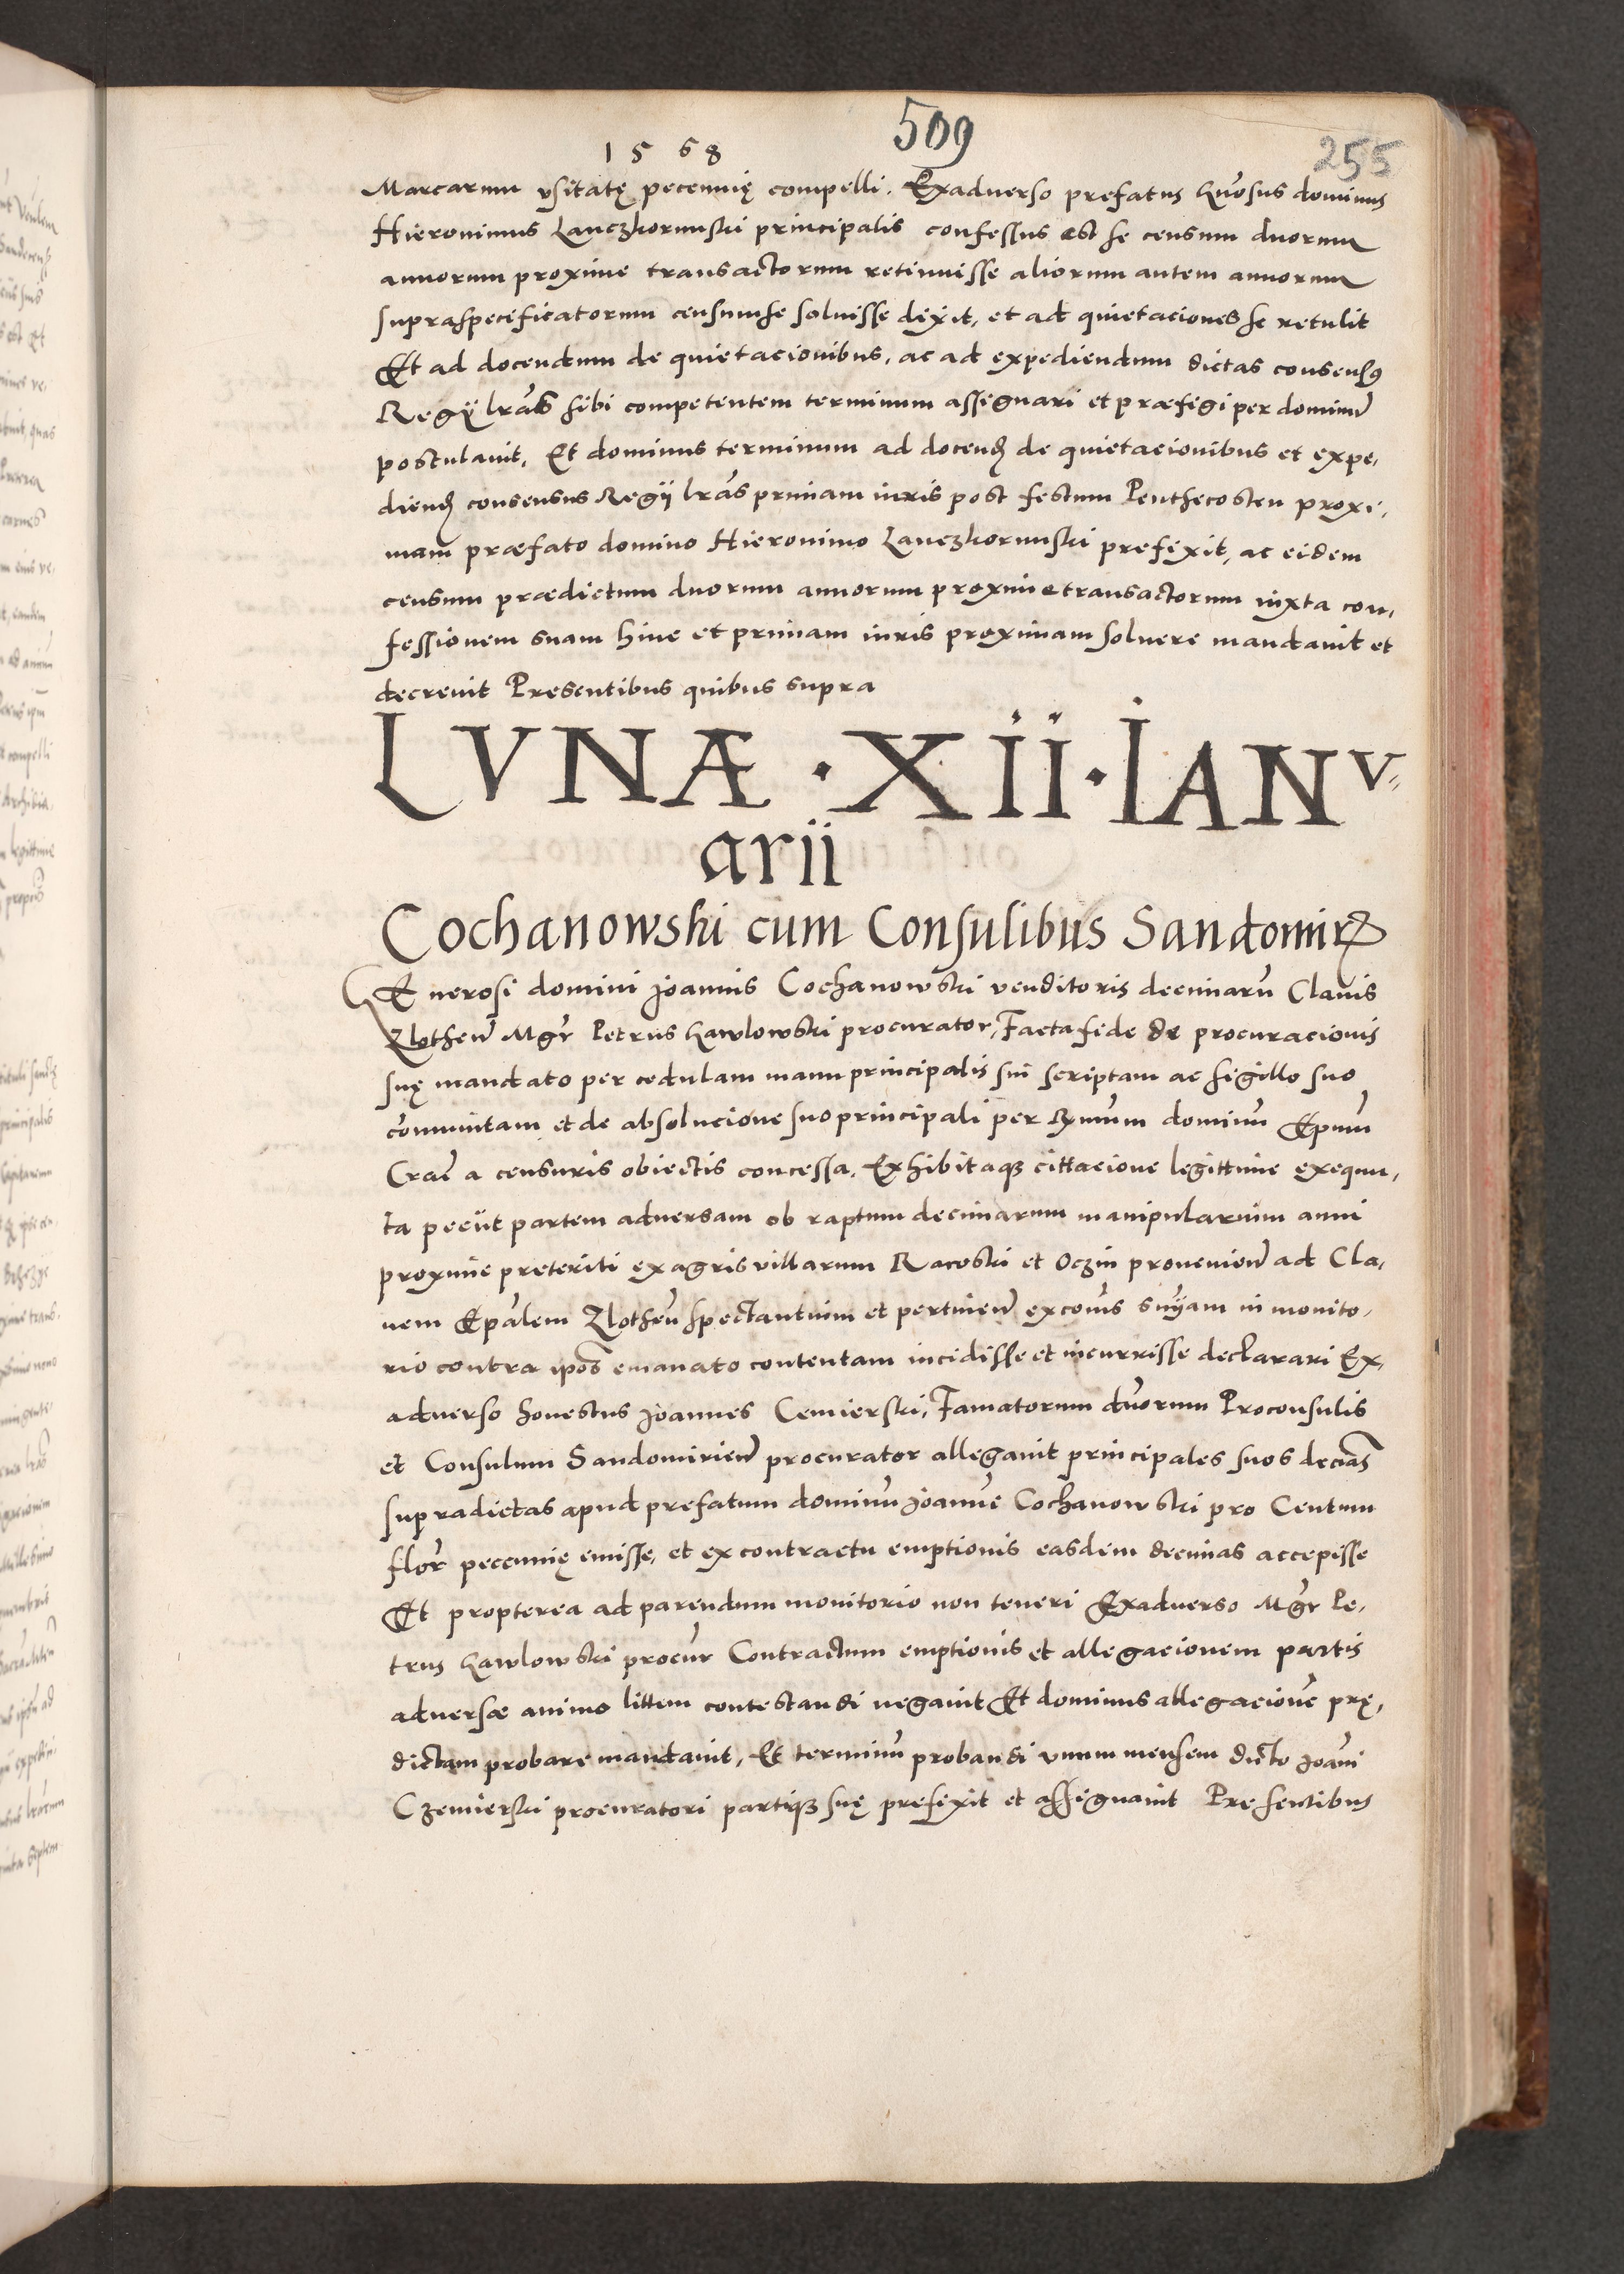 509
255
1568
Marcarum vsitatę pecunię compelli. Exaduerso prefatus Gn̄osus dominus
Hieronimus Lanczkorunski principalis confessus est se censum duorum
annorum proxime transactorum retinuisse aliorum autem annorum
supraspecificatorum censum se soluisse dixit, et ad quietaciones se retulit
Et ad docendum de quietacionibus, ac ad expediendum dictas consensus
Regÿ lrãs sibi competentem terminum assignari et præfigi per dominũ
postulauit, Et dominus terminum ad docend de quietacionibus et expe,
diend consensus Regii lrãs primam iuris post festum Penthecosten proxi,
mam præfato domino Hieronimo Lanczkorunski prefixit, ac eidem
censum prædictum duorum annorum proxime transactorum iuxta con,
fessionem suam hinc et primam iuris proximam soluere mandauit et
decreuit Presentibus quibus supra
LVNÆ · XII · IANV,,
arii
Cochanowski cum Consulibus Sandomir
GEnerosi domini Joannis Cochanowski venditoris decimarũ Clauis
Zlothen Mgr Petrus Gawlowski procurator, Facta fide de procuracionis
suę mandato per cedulam manu principalis sui scriptam ac sigillo suo
cõmunitam et de absolucione suo principali per Rmum dominũ Epum
Crac̃ a censuris obiectis concessa. Exhibitaqꝫ cittacione legittime exequu,
ta peciit partem aduersam ob raptum decimarum manipularium anni
proxime preteriti ex agris villarum Racoski et Oczin prouenien ad Cla,
uem Epãlem Zlothen̄ spectantium et pertinen excõis sn̄iam in monito,
rio contra ipos̃ emanato contentam incidisse et incurrisse declarari Ex,
aduerso honestus Joannes Cemierski, Famatorum dn̄orum Proconsulis
et Consulum Sandomirien procurator allegauit principales suos decĩas
supradictas apud prefatum dominũ Joannẽ Cochanowski pro Centum
flor pecunię emisse, et ex contractu emptionis easdem decimas accepisse
Et propterea ad parendum monitorio non teneri Exaduerso Mgr Pe,
trus Gawlowski procur Contractum emptionis et allegacionem partis
aduersæ animo littem contestandi negauit Et dominus allegacionẽ prę,
dictam probare mandauit, Et terminũ probandi vnum mensem dicto Joañi
Czemierski procuratori partiqꝫ suę prefixit et assignauit Presentibus